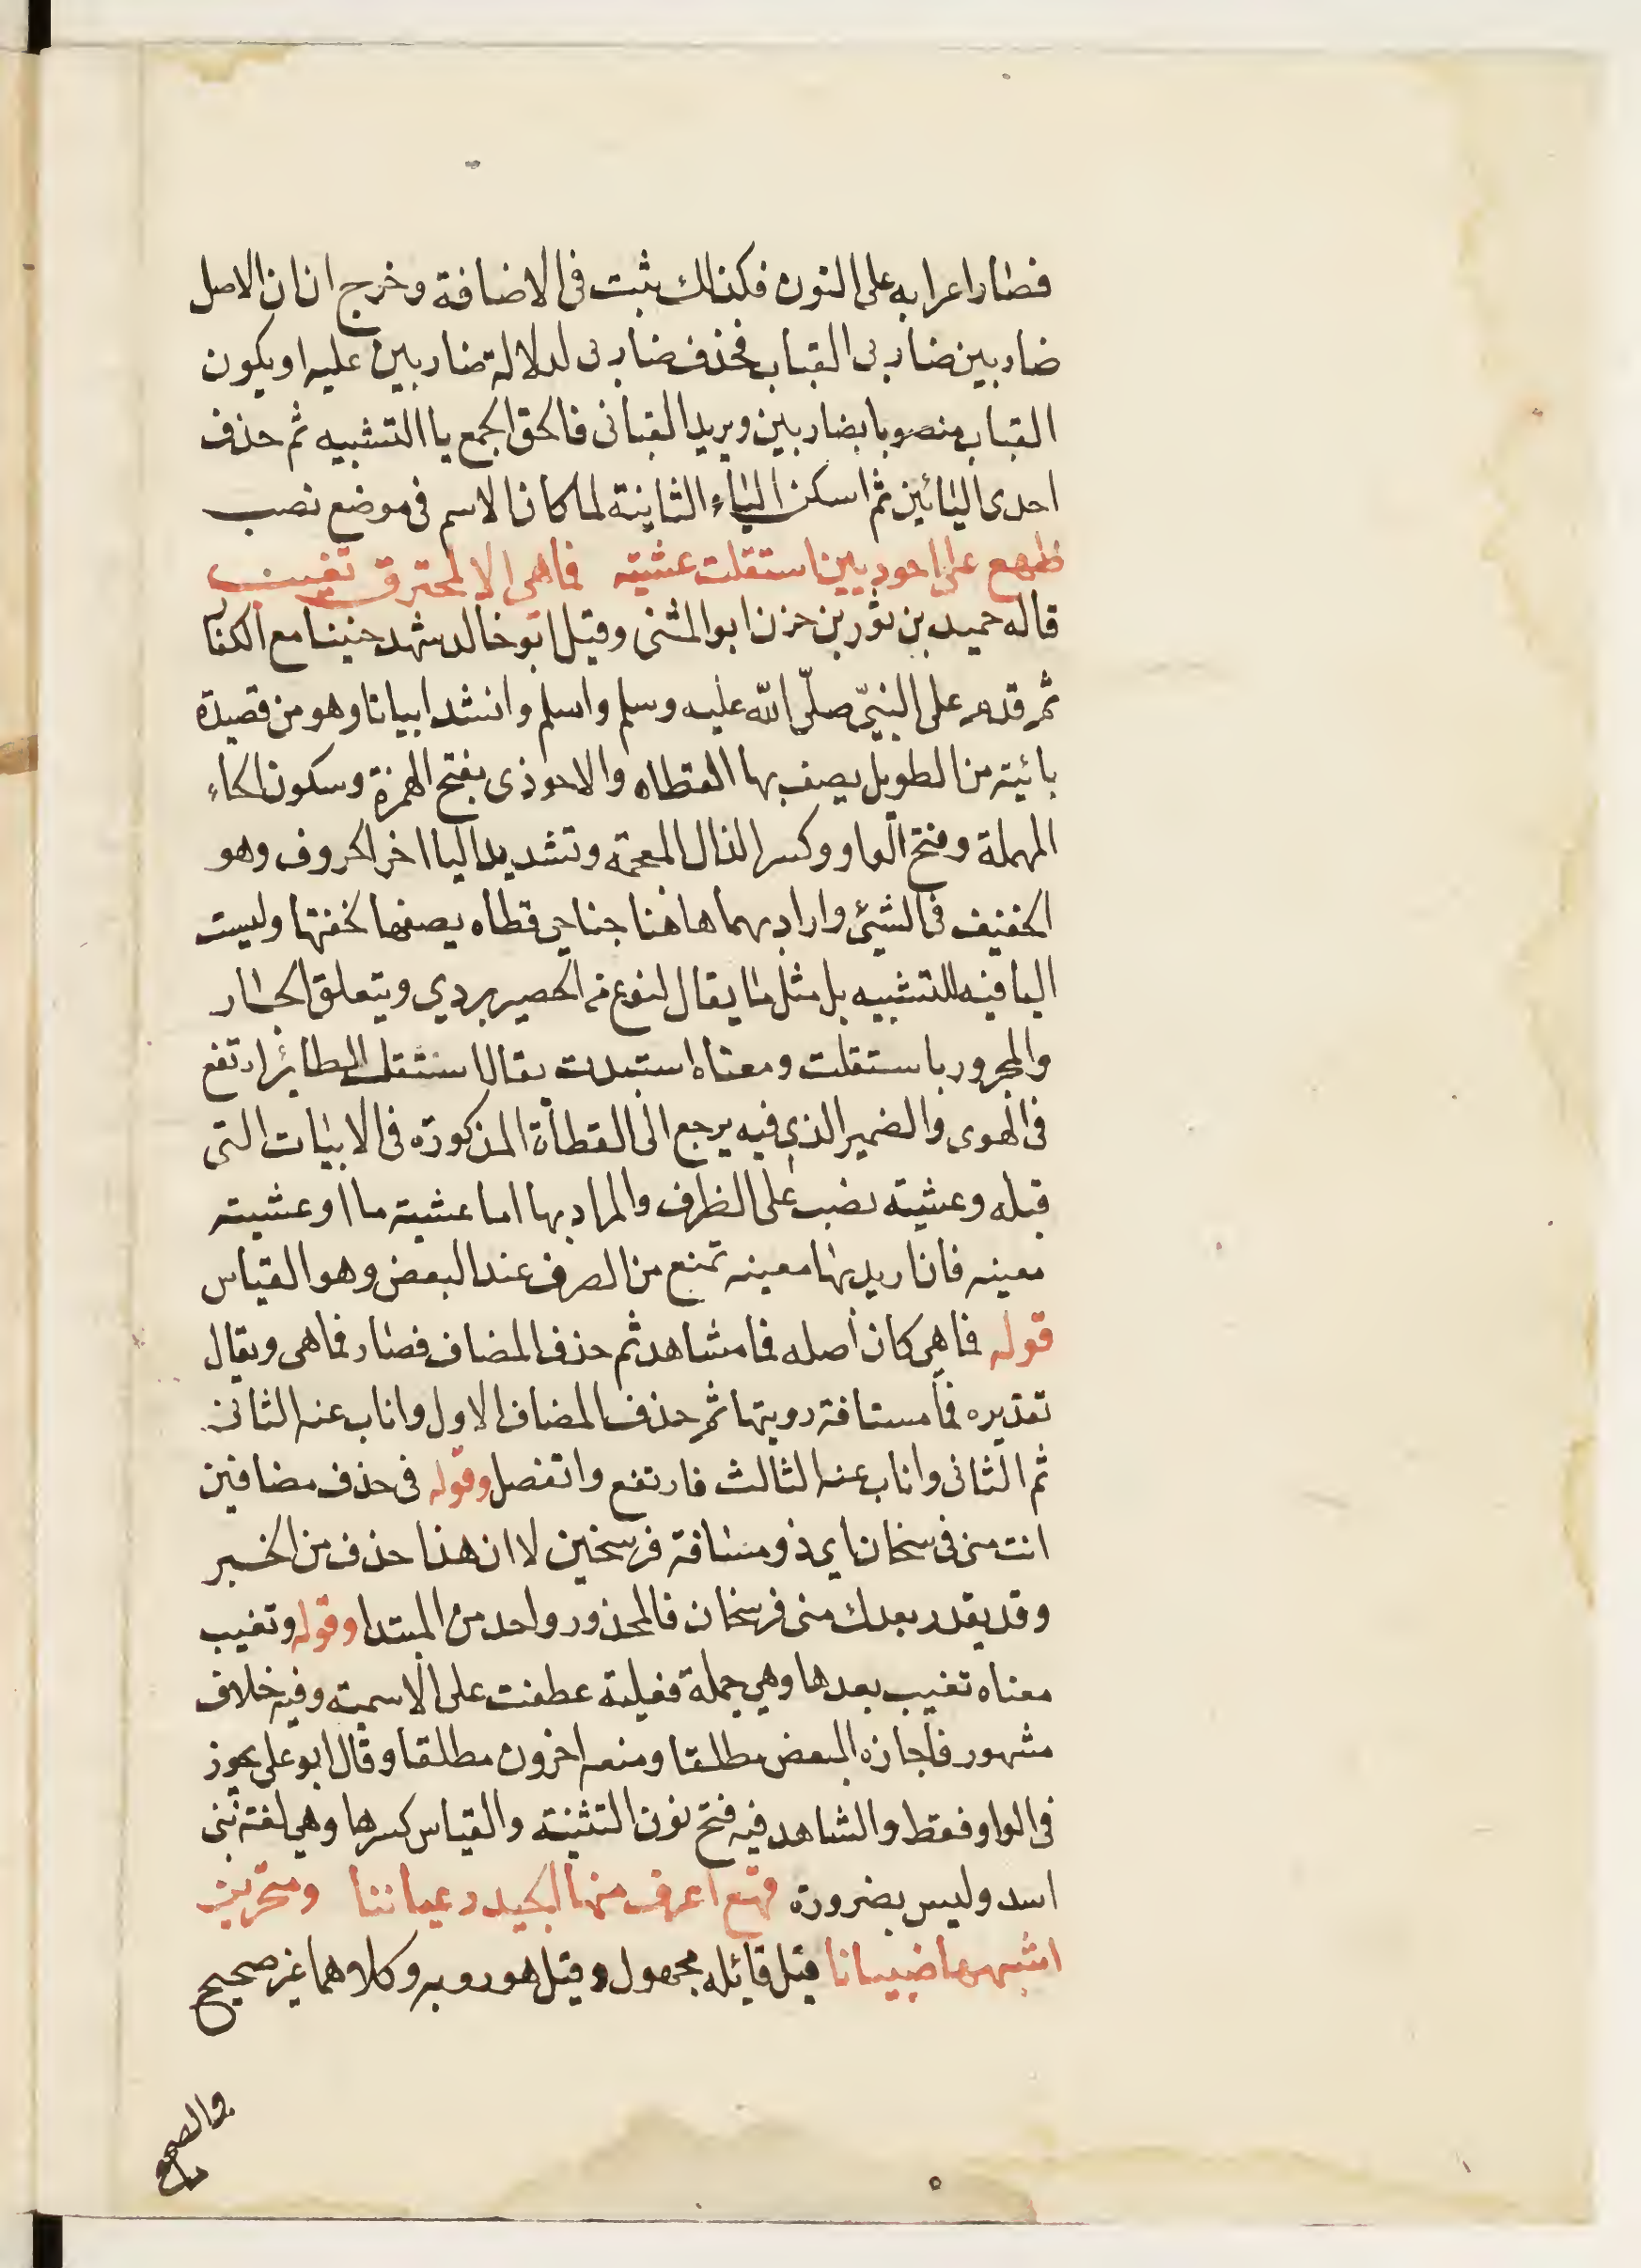 فصار اعرابه على النون فكذلك ثبت فى الاضافة وخرج ان ان الاصل
ضاربين ضاربى القباب فحذف ضاربى لدلالة ضاربين عليه او يكون
القباب منصوبا بضاربين ويريد القبابى فالحق الجمع يا التشبيه ثم حذف
احدى اليائين ثم اسكن الياء الثانية لما كان الاسم فى موضع نصب
ظهع على احوذيين استقلت عشية فما هى الا لمحة وتغيب
قاله حميد بن ثور بن حزن ابو المثنى وقيل ابو خالد شهد حنينا مع الكفار
ثم قدم على النبىّ صلّى الله عليه وسلم واسلم وانشد ابياتا وهو من قصيدة
بائية من الطويل يصف بها القطاه والاحوذى بفتح الهمزة وسكون الحاء
المهملة وفتح الواو وكسر الذال المعجمة وتشديد اليا اخر الحروف وهو
الخفيف فى الشئ واراد بهما هاهنا جناحى قطاه يصفها بخفتها وليست
اليا فيه للتشبيه بل مثل ما يقال لنوع من الحصير بردي ويتعلق الجار
والمجرور باستقلت ومعناه استبدت يقال استقلت الطائر ارتفع
فى الهوى والضمير الذى فيه يرجع الى القطاة المذكورة فى الابيات التى
قبله وعشية نصب على الظرف والمراد بها اما عشية ما او عشية
معينه فان اريد بها معينه تمنع من الصرف عند البعض وهو القياس
قوله فما هى كان أصله فما مشاهد ثم حذف المضاف فصار فما هى ويقال
تقديره فما مسافة رويتها ثم حذف المضاف الاول واناب عنه الثانى
ثم الثانى واناب عنه الثالث فارتفع وانفصل وقوله فى حذف مضافين
انت منى فرسخان اى ذو مسافة فرسخين لا ان هذا حذف من الخبر
وقد يقدر بعدك منى فرسخان فالمحذور واحد من المبتدا وقوله وتغيب
معناه تغيب بعدها وهى جملة فعلية عطفت على الاسمية وفيه خلاف
مشهور فأجازه البعض مطلقا ومنعه اخرون مطلقا وقال ابو على يجوز
فى الواو فقط والشاهد فيه فتح نون التثنية والقياس كسرها وهى لغة بنى
اسد وليس بضرورة قهع اعرف منها الجيد والعينانا ومنخرين
اشبها ضبيانا قيل قائله مجهول وقيل هو روبه وكلاهما غير صحيح
والصحيح